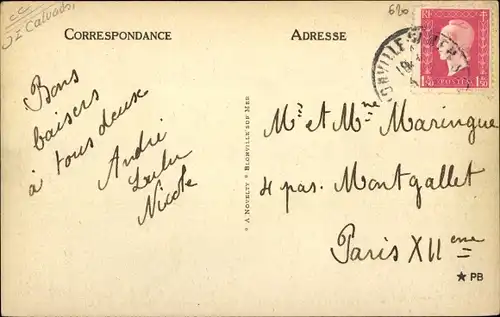 CC
JI Calvados
620
CORRESPONDANCE
ADRESSE
Bons
baisers
à tous deux
André
Lulu
Nicole
* A. NOVELTY * BLONVILLE-SUR MER
RF
1F50
POSTES
1F50
Mr et Mme Maringue
4 pas. Montgallet
Paris XIIeme
★ PB